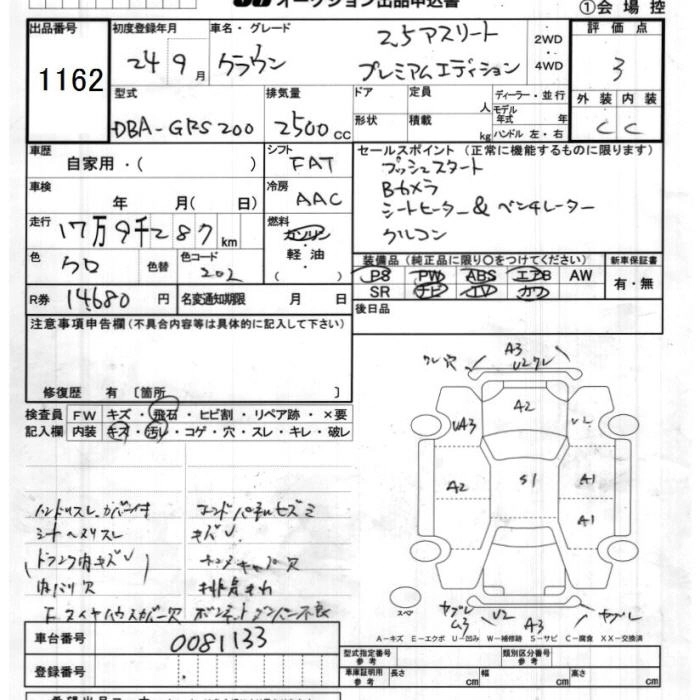 オークション出品申込書
①会場控
出品番号
1162
初度登録年月
24 9月
車名・グレード
クラウン
2.5 アスリート
プレミアムエディション
2WD
4WD
評価点
3
外装 内装
C C
型式
DBA-GRS200
排気量
2500 CC
ドア
形状
定員 人
積載 kg
ディーラー・並行
モデル年式 年
ハンドル 左・右
車歴
自家用・( )
シフト
FAT
セールスポイント(正常に機能するものに限ります)
プッシュスタート
Bカメラ
シートヒーター & ベンチレーター
クルコン
車検
年 月( 日)
冷房
AAC
走行
17万9千287 km
燃料
ガソリン
軽油
( )
色
クロ
色替
色コード
202
装備品(純正品に限り○をつけてください)
PS PW ABS エアB AW
SR ナビ TV カワ
新車保証書
有・無
R券 14680 円
名変通知期限 月 日
後日品
注意事項申告欄(不具合内容等は具体的に記入して下さい)
修復歴 有〔箇所 〕
検査員記入欄
FW キズ・飛石・ヒビ割・リペア跡・×要
内装 キズ・汚レ・コゲ・穴・スレ・キレ・破レ
ハンドルスレ カバー付
シートヘタリスレ
トランク内キズU
内ハリ穴
エンドパネルセズミ
キズU
キャップ穴
排気きれ
F タイヤハウスカバー穴
ボンネットダンパー不良
クレ 穴
A3
U2 クレ
A2
UA3
U2
A2
S1
A1
A1
スペア
ヤブレ
U2
A3
ヤブレ
A-キズ E-エクボ U-凹み W-補修跡 S-サビ C-腐食 XX-交換済
車台番号
0081133
登録番号
型式指定番号
参考
類別区分番号
参考
車庫証明用
参考
長さ cm
幅 cm
高さ cm